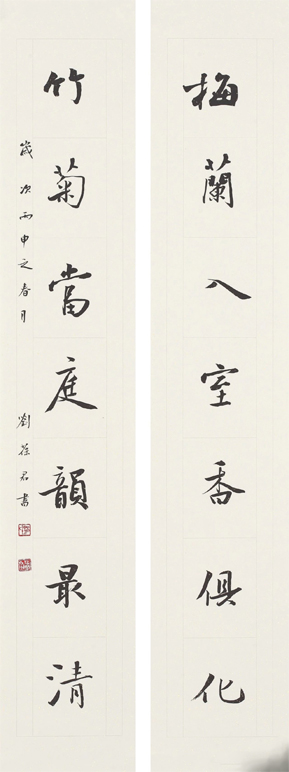 梅蘭入室香俱化
竹菊當庭韻最清
歲次丙申之春月
劉葆君書